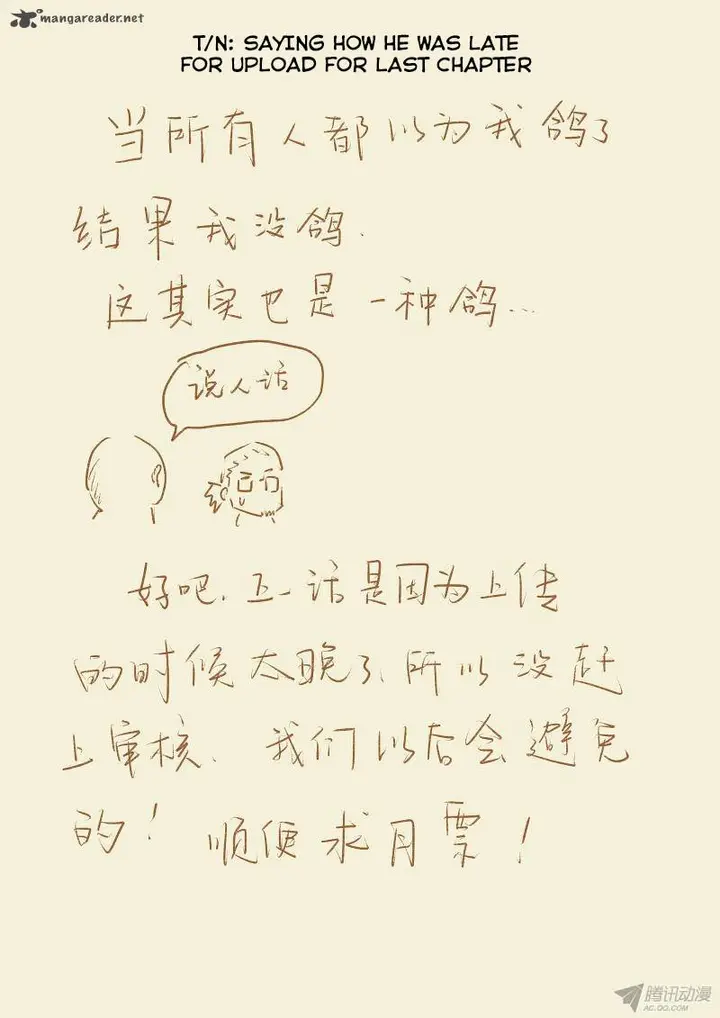 mangareader.net
T/N: SAYING HOW HE WAS LATE
FOR UPLOAD FOR LAST CHAPTER
当所有人都以为我鸽了
结果我没鸽.
这其实也是一种鸽...
说人话
好吧.上一话是因为上传
的时候太晚了、所以没赶
上审核. 我们以后会避免
的! 顺便求月票!
腾讯动漫
AC.QQ.COM